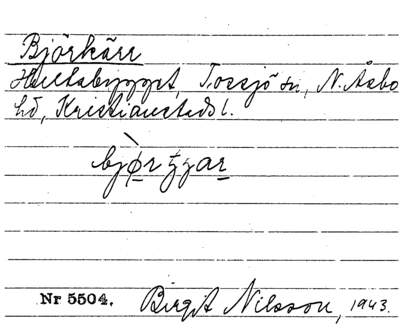 Björkärr
Hultabygget, Tossjö sn, N. Åsbo
hd, Kristianstads l.
Nr 5504. Birgit Nilsson, 1943.